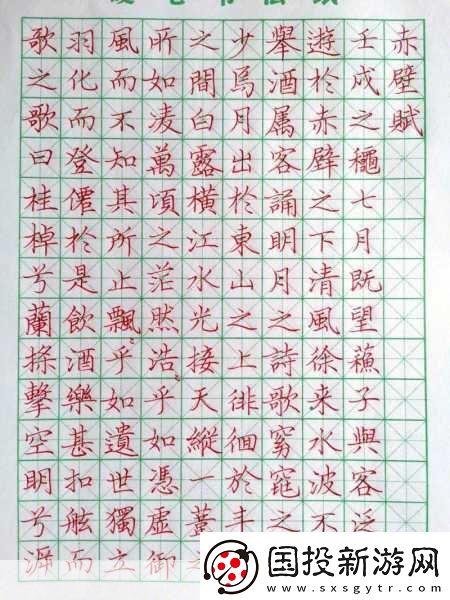 赤壁賦
壬戌之穐七月既望蘓子與客泛
遊於赤壁之下清風徐来水波不
舉酒属客誦明月之詩歌窈窕之
少焉月出於東山之上徘徊於斗
之間白露橫江水光接天縱一葦
所如凌萬頃之茫然浩乎如憑虛御
風而不知其所止飄乎如遺世獨立
羽化而登僊於是飲酒樂甚扣舷而
歌之歌曰桂棹兮蘭槳擊空明兮泝
国投新游网
www.sxsgytr.com